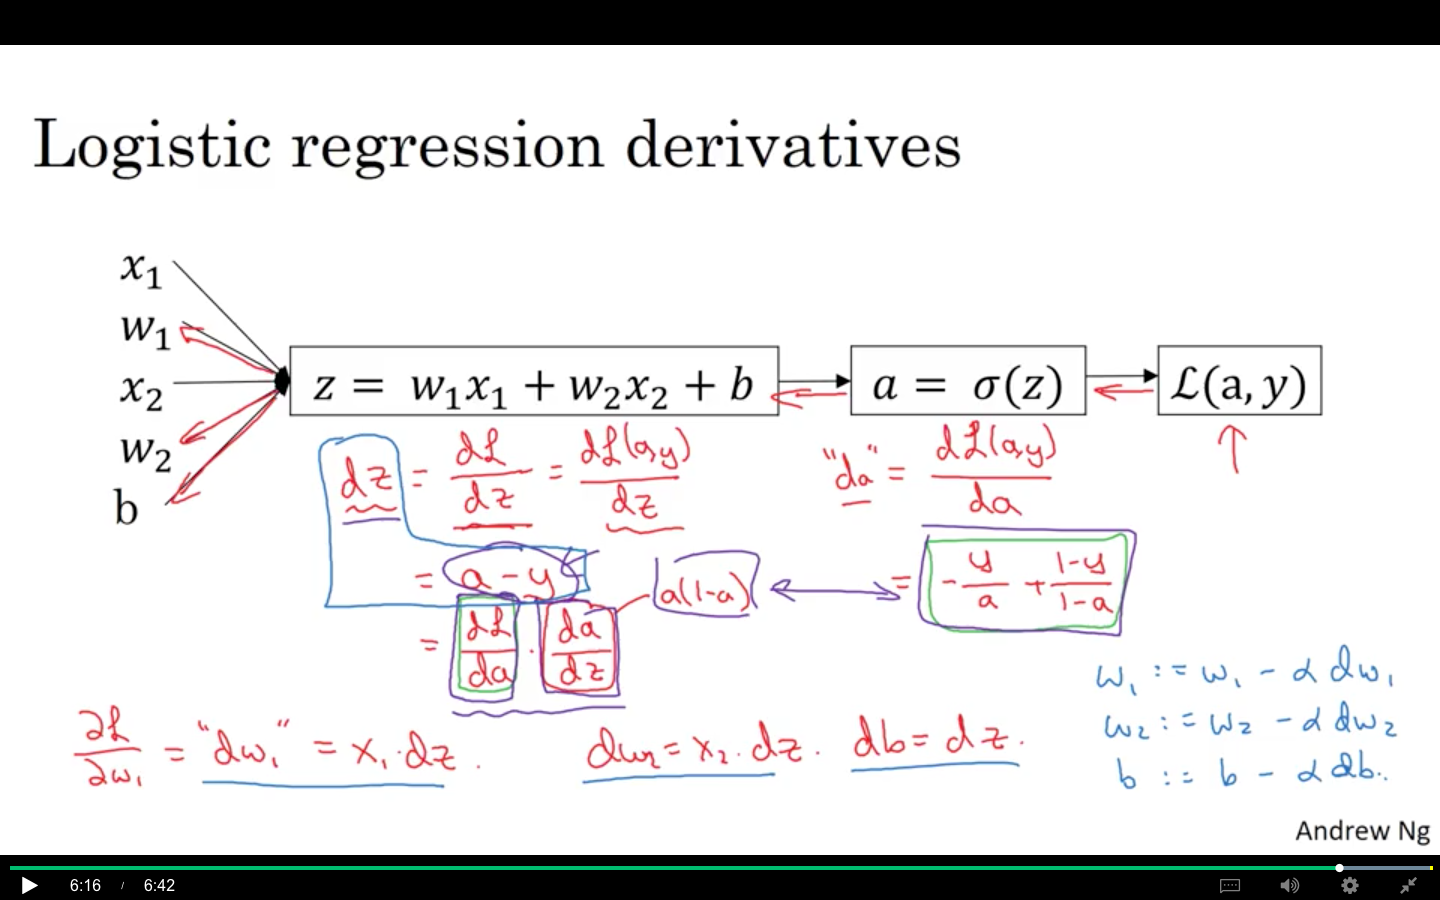 Logistic regression derivatives
x₁
w₁
x₂
w₂
b
z = w₁x₁ + w₂x₂ + b
a = σ(z)
ℒ(a, y)
dz = dℒ/dz = dℒ(a,y)/dz
"da" = dℒ(a,y)/da
= a - y
a(1-a)
= -y/a + (1-y)/(1-a)
= dℒ/da · da/dz
∂ℒ/∂w₁ = "dw₁" = x₁·dz.
dw₂ = x₂·dz.
db = dz.
w₁ := w₁ - α dw₁
w₂ := w₂ - α dw₂
b := b - α db.
Andrew Ng
6:16 / 6:42